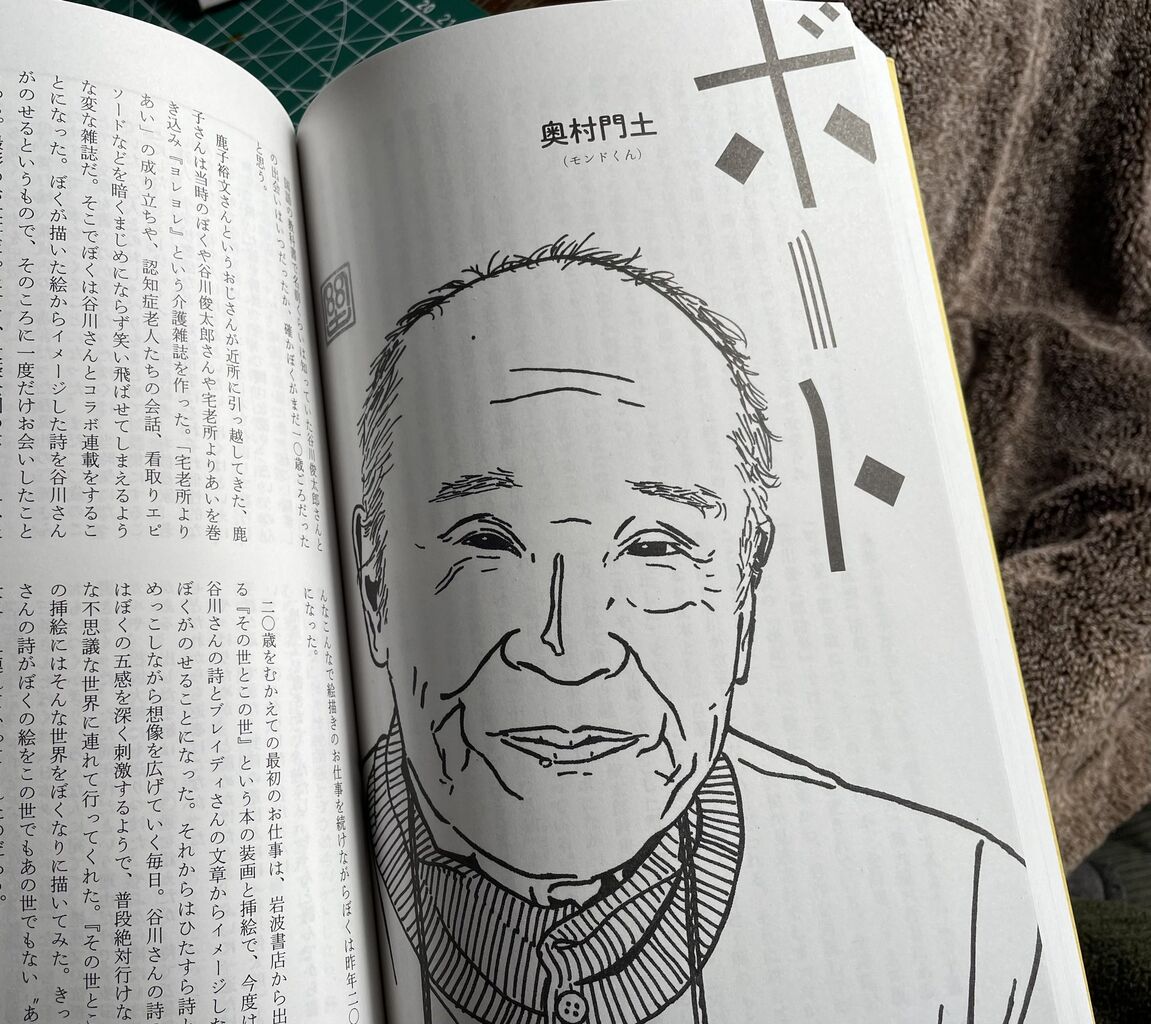 ボーン
奥村門土
（モンドくん）
国語の教科書で名前くらいは知っていた谷川俊太郎さんと
の出会いはいつだったか、確かぼくがまだ一〇歳ごろだった
と思う。
鹿子裕文さんというおじさんが近所に引っ越してきた、鹿
子さんは当時のぼくや谷川俊太郎さんや宅老所よりあいを巻
き込み『ヨレヨレ』という介護雑誌を作った。「宅老所より
あい」の成り立ちや、認知症老人たちの会話、看取りエピ
ソードなどを暗くまじめにならず笑い飛ばせてしまえるよう
な変な雑誌だ。そこでぼくは谷川さんとコラボ連載をするこ
とになった。ぼくが描いた絵からイメージした詩を谷川さん
がのせるというもので、そのころに一度だけお会いしたこと
んなこんなで絵描きのお仕事を続けながらぼくは昨年二〇
になった。
二〇歳をむかえての最初のお仕事は、岩波書店から出
る『その世とこの世』という本の装画と挿絵で、今度は
谷川さんの詩とブレイディさんの文章からイメージした
ぼくがのせることになった。それからはひたすら詩と
めっこしながら想像を広げていく毎日。谷川さんの詩
はぼくの五感を深く刺激するようで、普段絶対行けな
な不思議な世界に連れて行ってくれた。『その世とこ
の挿絵にはそんな世界をぼくなりに描いてみた。きっ
さんの詩がぼくの絵をこの世でもあの世でもない〝あ
20